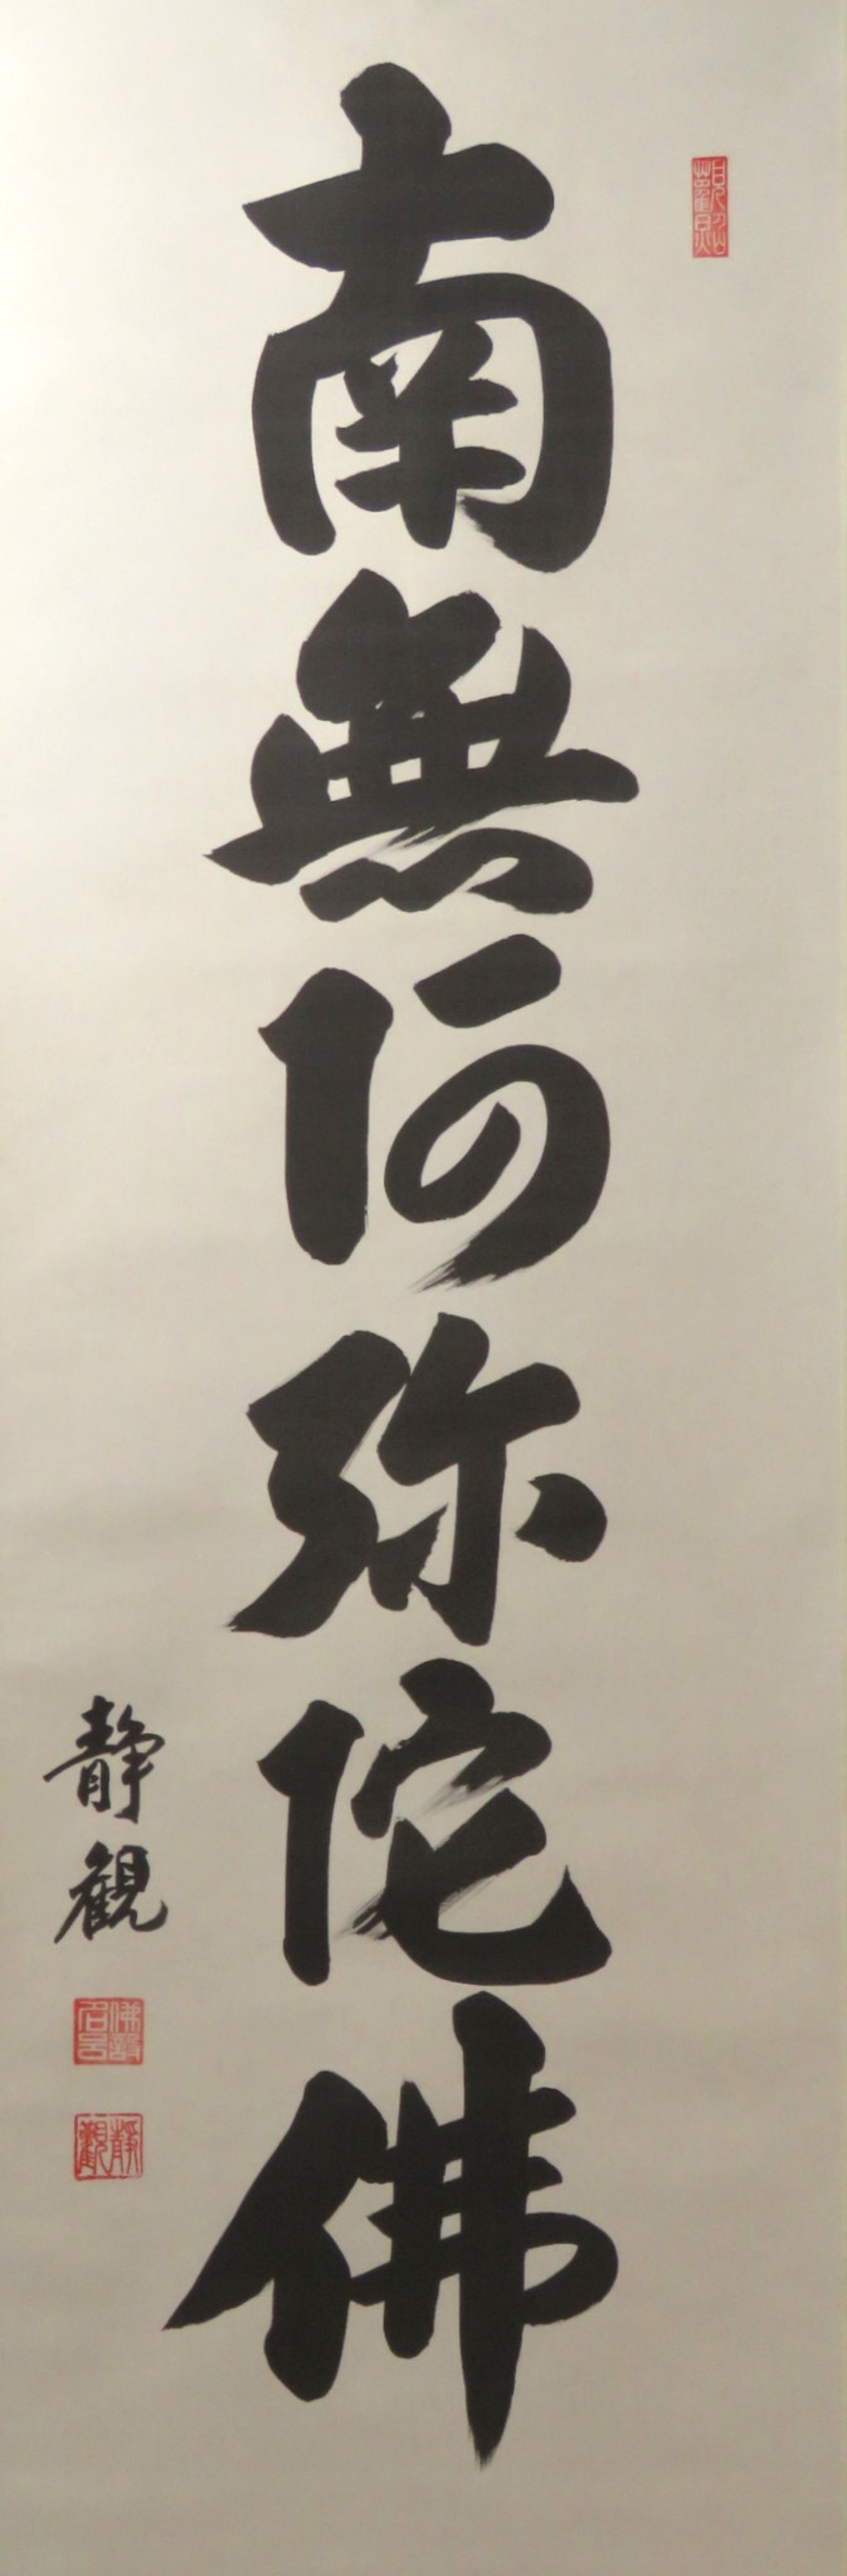 南無阿弥陀佛
静観
静觀